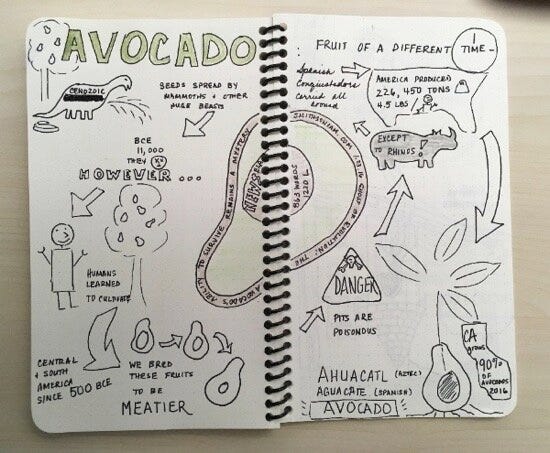 AVOCADO
CENOZOIC
SEEDS SPREAD BY
MAMMOTHS + OTHER
HUGE BEASTS
BCE
11,000
THEY
HOWEVER ...
HUMANS
LEARNED
TO CULTIVATE
CENTRAL
+ SOUTH
AMERICA
SINCE 500 BCE
WE BRED
THESE FRUITS
TO BE
MEATIER
AVOCADO'S ABILITY TO SURVIVE REMAINS A MYSTERY
NEWSELA
: FRUIT OF A DIFFERENT TIME -
Spanish
Conquistadors
carried all
around
AMERICA PRODUCED
226,450 TONS
4.5 LBS
EXCEPT
TO RHINOS!
SMITHSONIAN.COM
OF EVOLUTION: THE
863 WORDS
1220 L
DANGER
PITS ARE
POISONOUS
CA
grows
90%
OF AVOCADOS
2016
AHUACATL (AZTEC)
AGUACATE (SPANISH)
AVOCADO